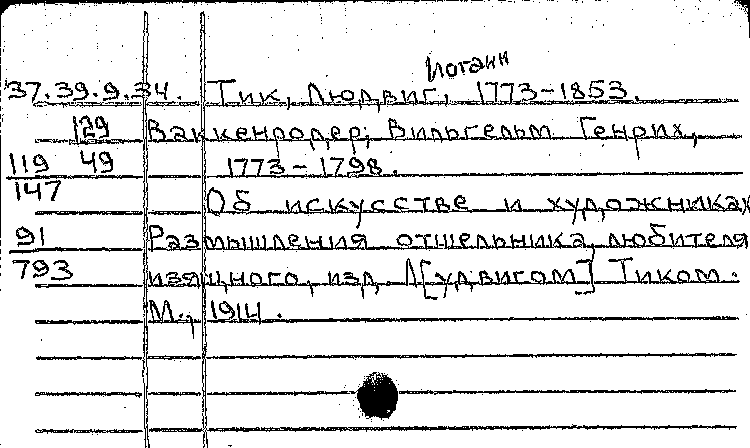 Иоганн
37.39.9.34. Тик, Людвиг, 1773-1853.
129 Ваккенродер, Вильгельм Генрих,
119 49 1773-1798.
147 Об искусстве и художниках
91 Размышления отшельника, любителя
793 изящного, изд. Л[удвигом] Тиком.
М., 1914.